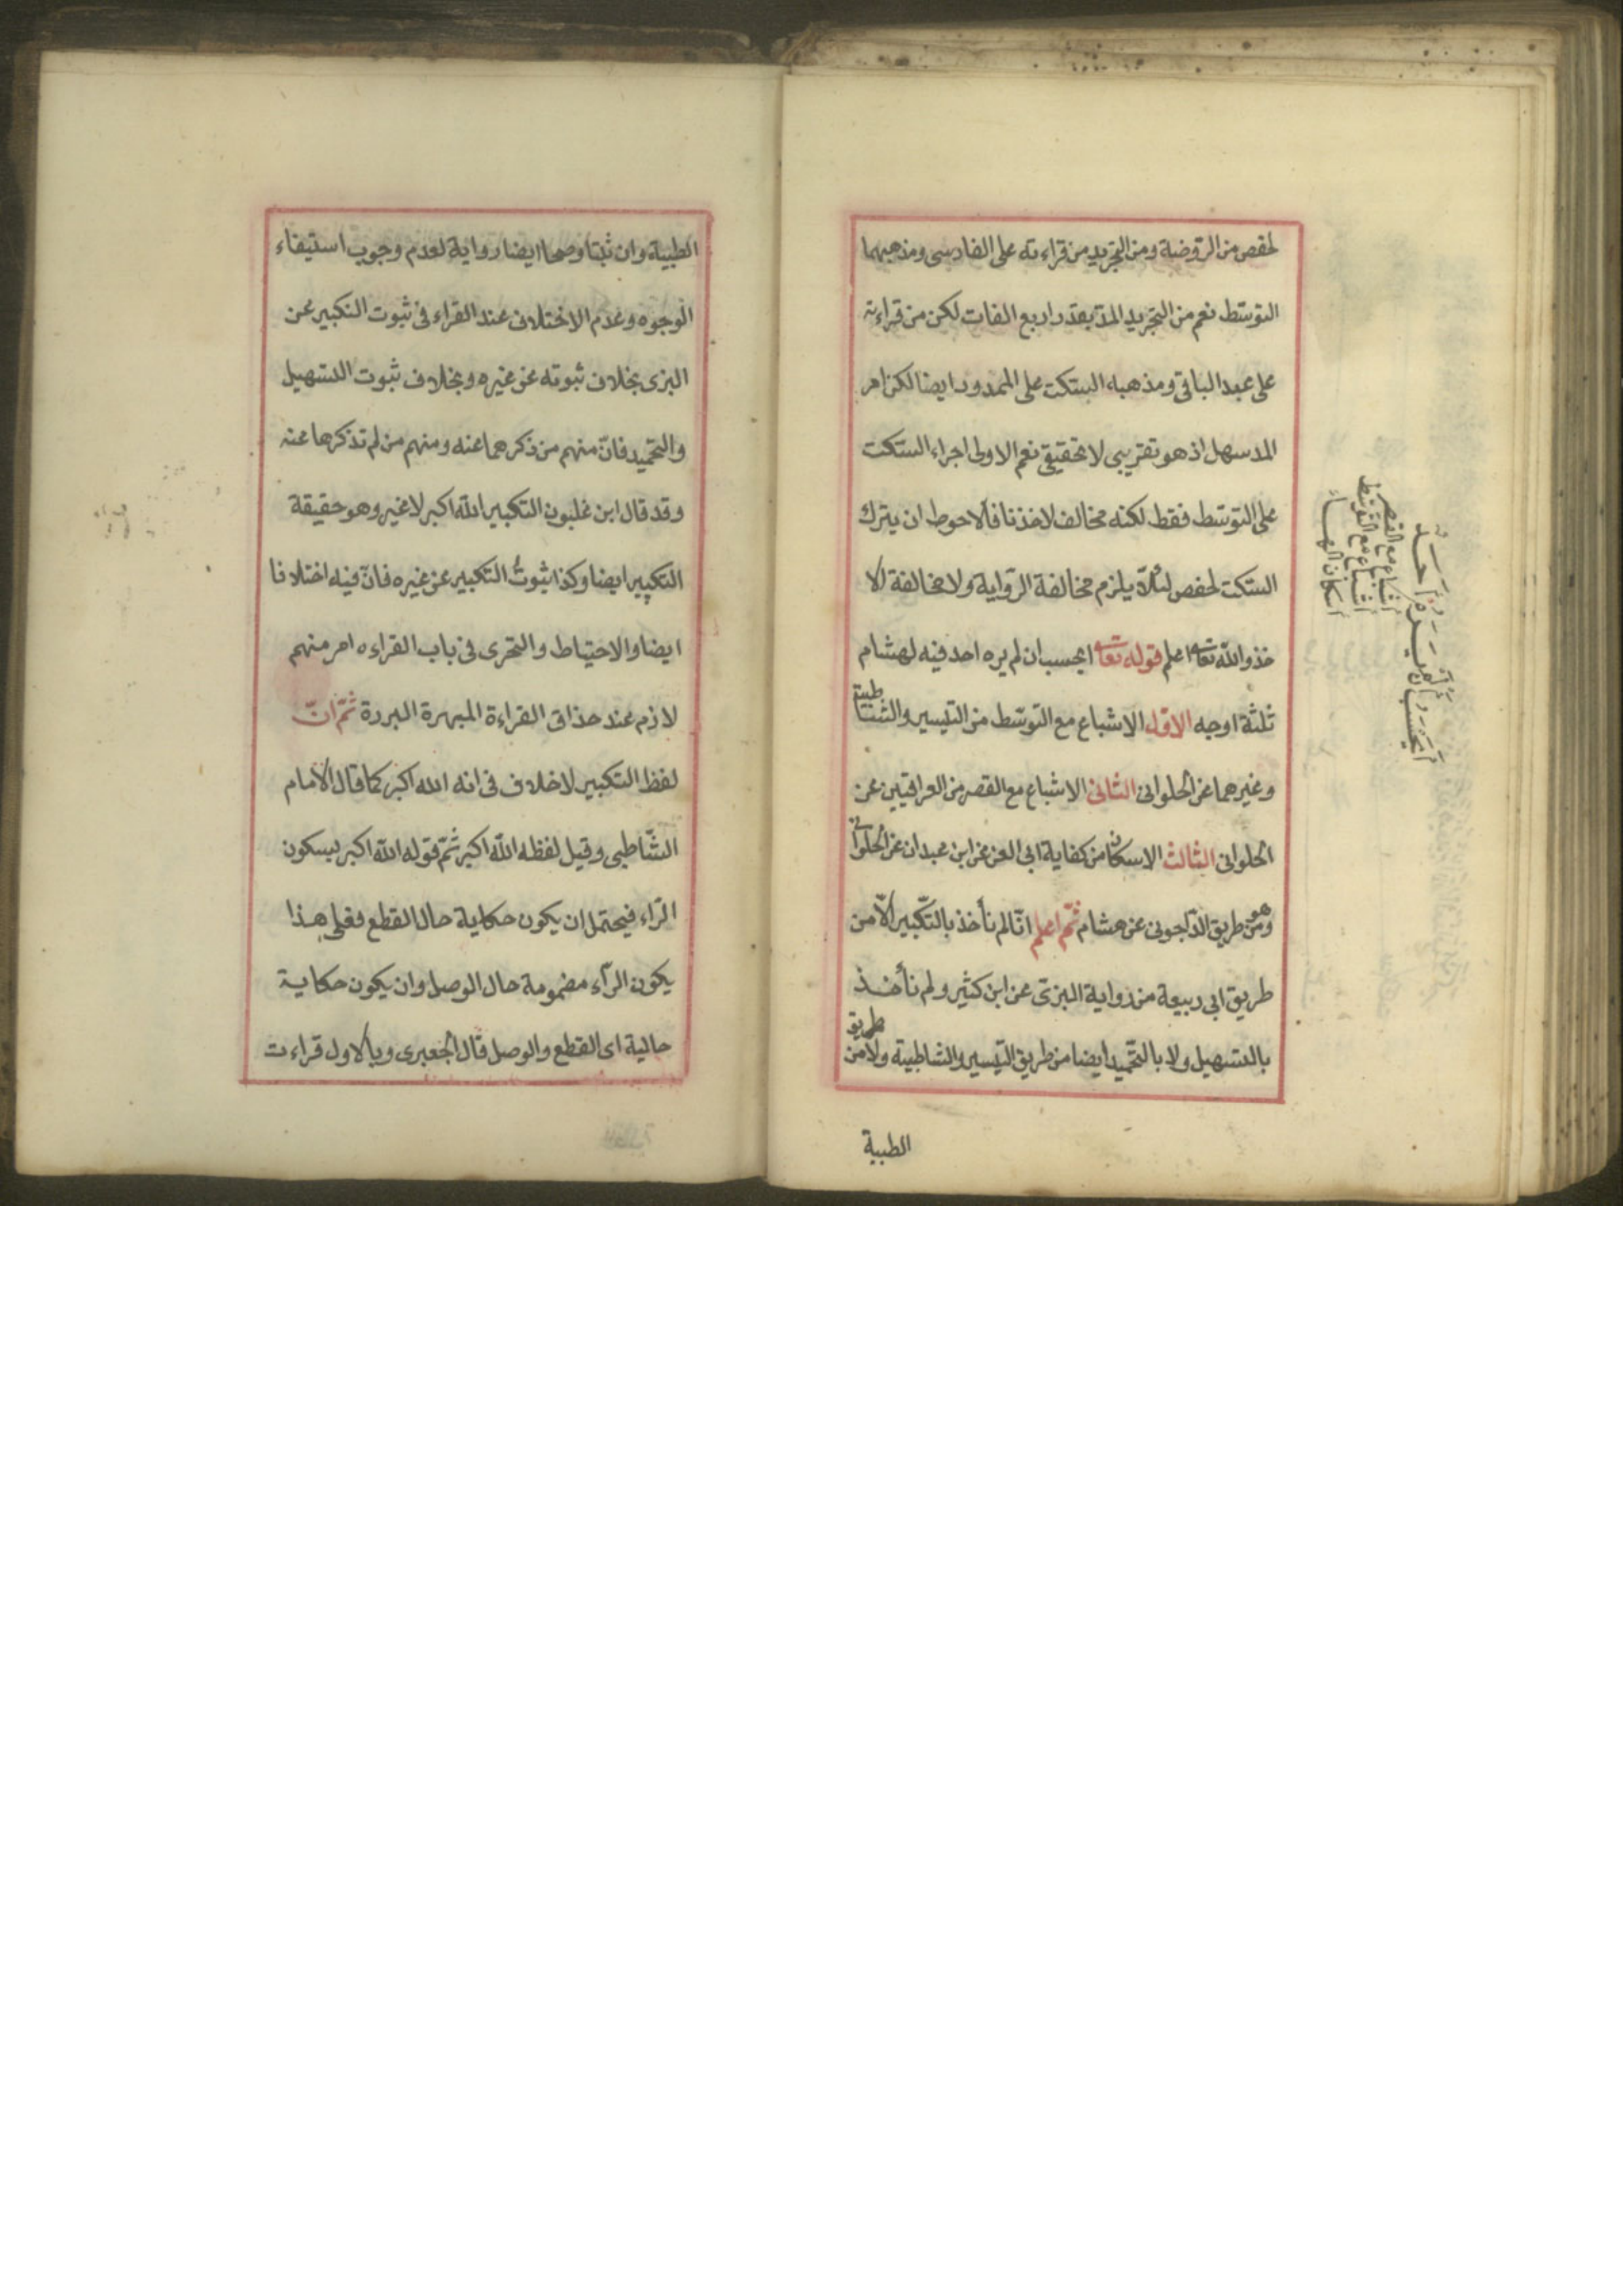 لحفص من الروضة ومن التجريد من قراءته على الفارسى ومذهبهما
التوسّط نعم من التجريد المدّ بقدر اربع الفات لكن من قراءته
على عبد الباقى ومذهبه السكت على الممدود ايضا لكن امر
المد سهل اذ هو تقريبى لا تحقيقى نعم الاولى اجراء السكت
على التوسّط فقط لكنه مخالف لاخذنا فالاحوط ان يترك
السكت لحفص لئلّا يلزم مخالفة الرّواية ولا مخالفة الا
خذ والله تعالى اعلم قوله تعالى ايحسب ان لم يره احد فيه لهشام
ثلثة اوجه الاوّل الاشباع مع التوسّط من التيسير والشاطبية
وغيرهما عن الحلوانى الثانى الاشباع مع القصر من العراقيين عن
الحلوانى الثالث الاسكان من كفاية ابى العز عن ابن عبدان عن الحلوانى
وهو من طريق الدّاجونى عن هشام ثمّ اعلم انّا لم نأخذ بالتّكبير الّا من
طريق ابى ربيعة من رواية البزى عن ابن كثير ولم نأخذ
بالتسهيل ولا بالتّحميد ايضا من طريق التّيسير والشاطبية ولا من طريق
الطيبة
أيحسب أن لم يره أحد
اشباع مع القصر
اشباع مع التوسّط
اسكان الهاء
الطيبة وان ثبتا وصحا ايضا رواية لعدم وجوب استيفاء
الوجوه وعدم الاختلاف عند القراء فى ثبوت التكبير عن
البزى بخلاف ثبوته عن غيره وبخلاف ثبوت التسهيل
والتحميد فانّ منهم من ذكرهما عنه ومنهم من لم تذكرها عنه
وقد قال ابن غلبون التكبير الله اكبر لا غير وهو حقيقة
التكبير ايضا وكذا ثبوتُ التكبير عن غيره فانّ فيه اختلافا
ايضا والاحتياط والتحرى فى باب القراءه امر منهم
لازم عند حذاق القراءة المهرة البررة ثمّ انّ
لفظ التكبير لا خلاف فى انه الله اكبر كما قال الامام
الشّاطبى وقيل لفظه الله اكبر ثمّ قوله الله اكبر بسكون
الرّاء فيحتمل ان يكون حكاية حال القطع فعلى هذا
يكون الرآء مضمومة حال الوصل وان يكون حكاية
حالية اى القطع والوصل قال الجعبرى وبالاول قراءت